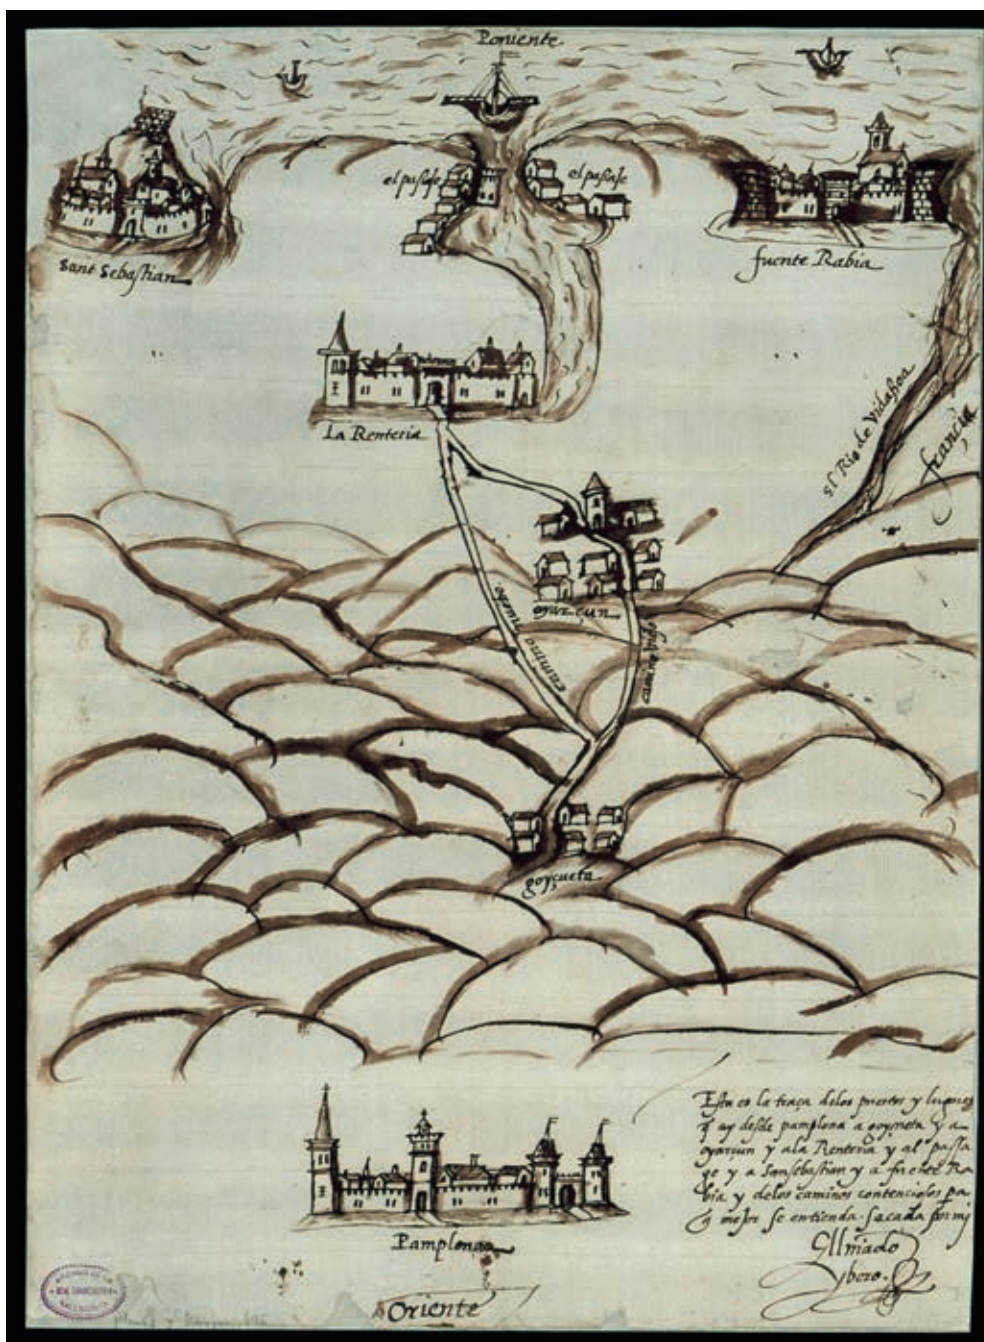 Poniente
el pasaje
el pasaje
Sant Sebastian
fuente Rabia
La Renteria
El Rio de Vidasoa
francia
oyarçun
camino nuebo
camino biejo
goyçueta
Esta es la traça delos puertos y lugares
q ay desde pamplona a goyçueta y a
oyarçun y ala Renteria y al passa
ge y a Sansebastian y a fuente Ra
bia y delos caminos contenciosos pa
q mejor se entienda sacada por mi
Pamplona
Oriente